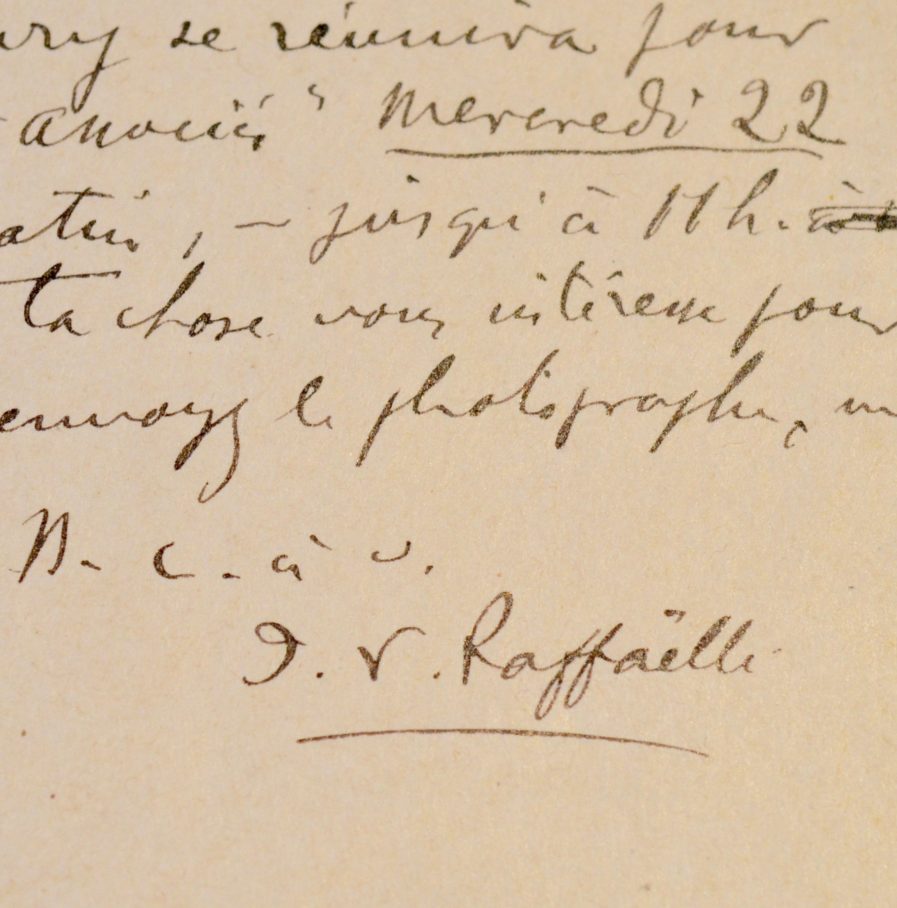 ury se réunira pour
associés" Mercredi 22
atin, – jusqu'à 11 h. à
la chose vous intéresse pour
envoyez le photographe,
B. C. à V.
J. F. Raffaëlli